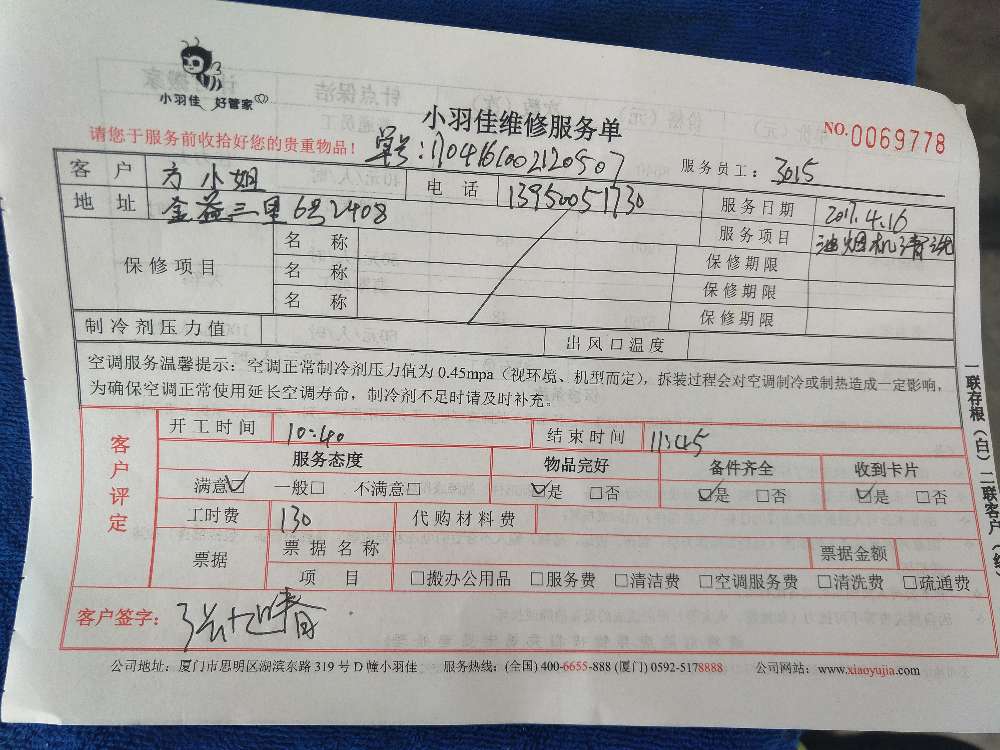 小羽佳 好管家
小羽佳维修服务单
NO.0069778
请您于服务前收拾好您的贵重物品!
单号:1704161002120507
服务员工: 3015
客 户 方小姐 电 话 13950051730 服务日期 2017.4.16
地 址 金益三里6号2408 服务项目 油烟机清洗
保修项目 名 称 保修期限
名 称 保修期限
名 称 保修期限
制冷剂压力值 出风口温度
空调服务温馨提示:空调正常制冷剂压力值为 0.45mpa(视环境、机型而定),拆装过程会对空调制冷或制热造成一定影响,
为确保空调正常使用延长空调寿命,制冷剂不足时请及时补充。
客户评定
开工时间 10:40 结束时间 11:45
服务态度 物品完好 备件齐全 收到卡片
满意☑ 一般□ 不满意□ ☑是 □否 ☑是 □否 ☑是 □否
工时费 130 代购材料费
票据 票据名称 票据金额
项 目 □搬办公用品 □服务费 □清洁费 □空调服务费 □清洗费 □疏通费
客户签字:
公司地址:厦门市思明区湖滨东路 319 号 D 幢小羽佳 服务热线:(全国) 400-6655-888 (厦门) 0592-5178888 公司网站:www.xiaoyujia.com
一联存根(白)二联客户(